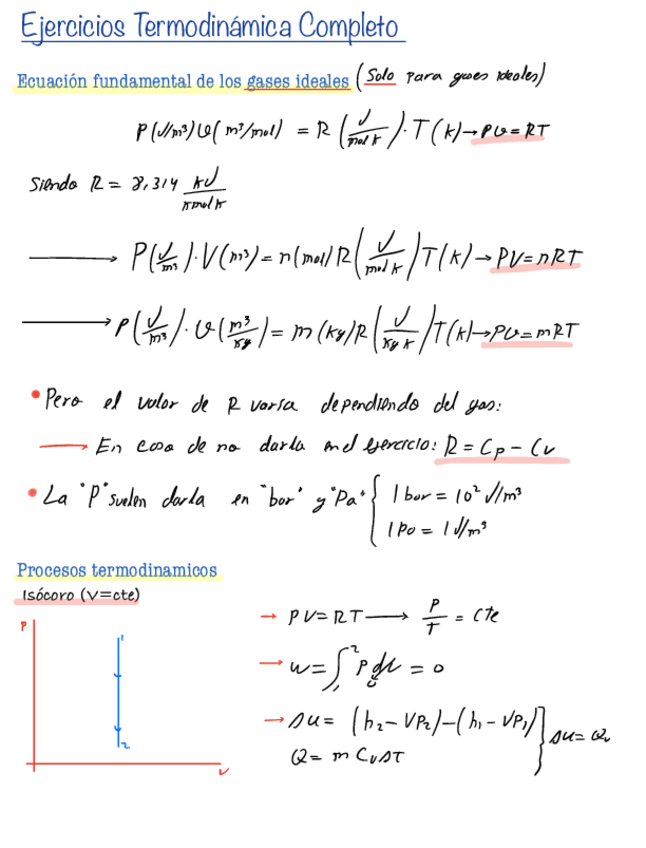 Ejercicios Termodinámica Completo
Ecuación fundamental de los gases ideales (Solo para gases ideales)
P(J/m³)v(m³/mol) = R (J/mol k)·T(k)→Pv=RT
Siendo R = 8,314 kJ/kmol k
→ P(J/m³)·V(m³)=n(mol)R(J/mol k)T(k)→PV=nRT
→ P(J/m³)·v(m³/kg)=m(kg)R(J/kg k)T(k)→Pv=mRT
• Pero el valor de R varía dependiendo del gas:
→ En caso de no darla en el ejercicio: R = Cp - Cv
• La "P" suelen darla en "bar" y "Pa" { 1 bar = 10² J/m³
1 Pa = 1 J/m³
Procesos termodinamicos
Isócoro (V=cte)
P
1
2
V
→ PV=RT → P/T = cte
→ w=∫₁² P dv = 0
→ Δu= (h₂-VP₂)-(h₁-VP₁)
Q= m CvΔT } Δu= Qv